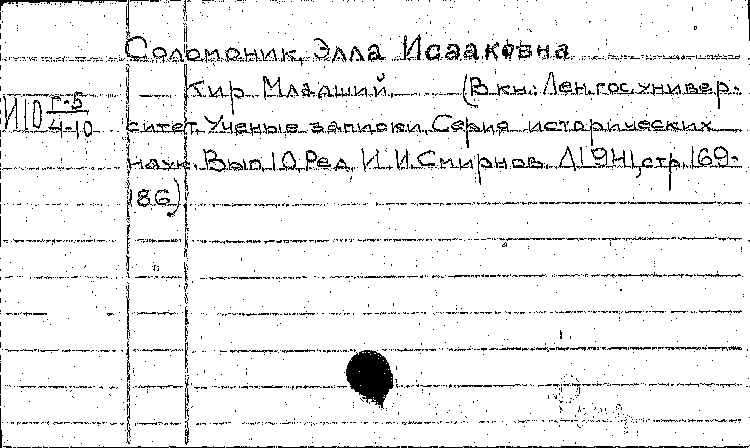 Соломоник, Элла Исааковна
Кир Младший. (В кн.: Лен. гос. универ-
И10 Г-5/4-10
ситет. Ученые записки. Серия исторических
наук. Вып. 10. Ред. И. И. Смирнов. Л 1941, стр. 169-
186).